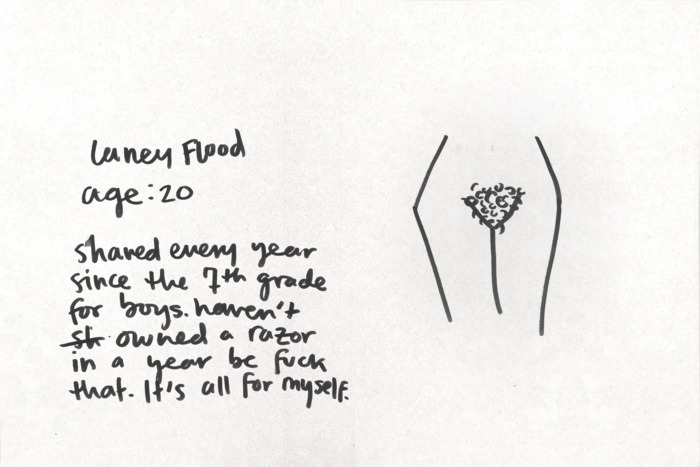 Laney Flood
age: 20
shaved every year
since the 7th grade
for boys. haven't
sh owned a razor
in a year bc fuck
that. It's all for myself.